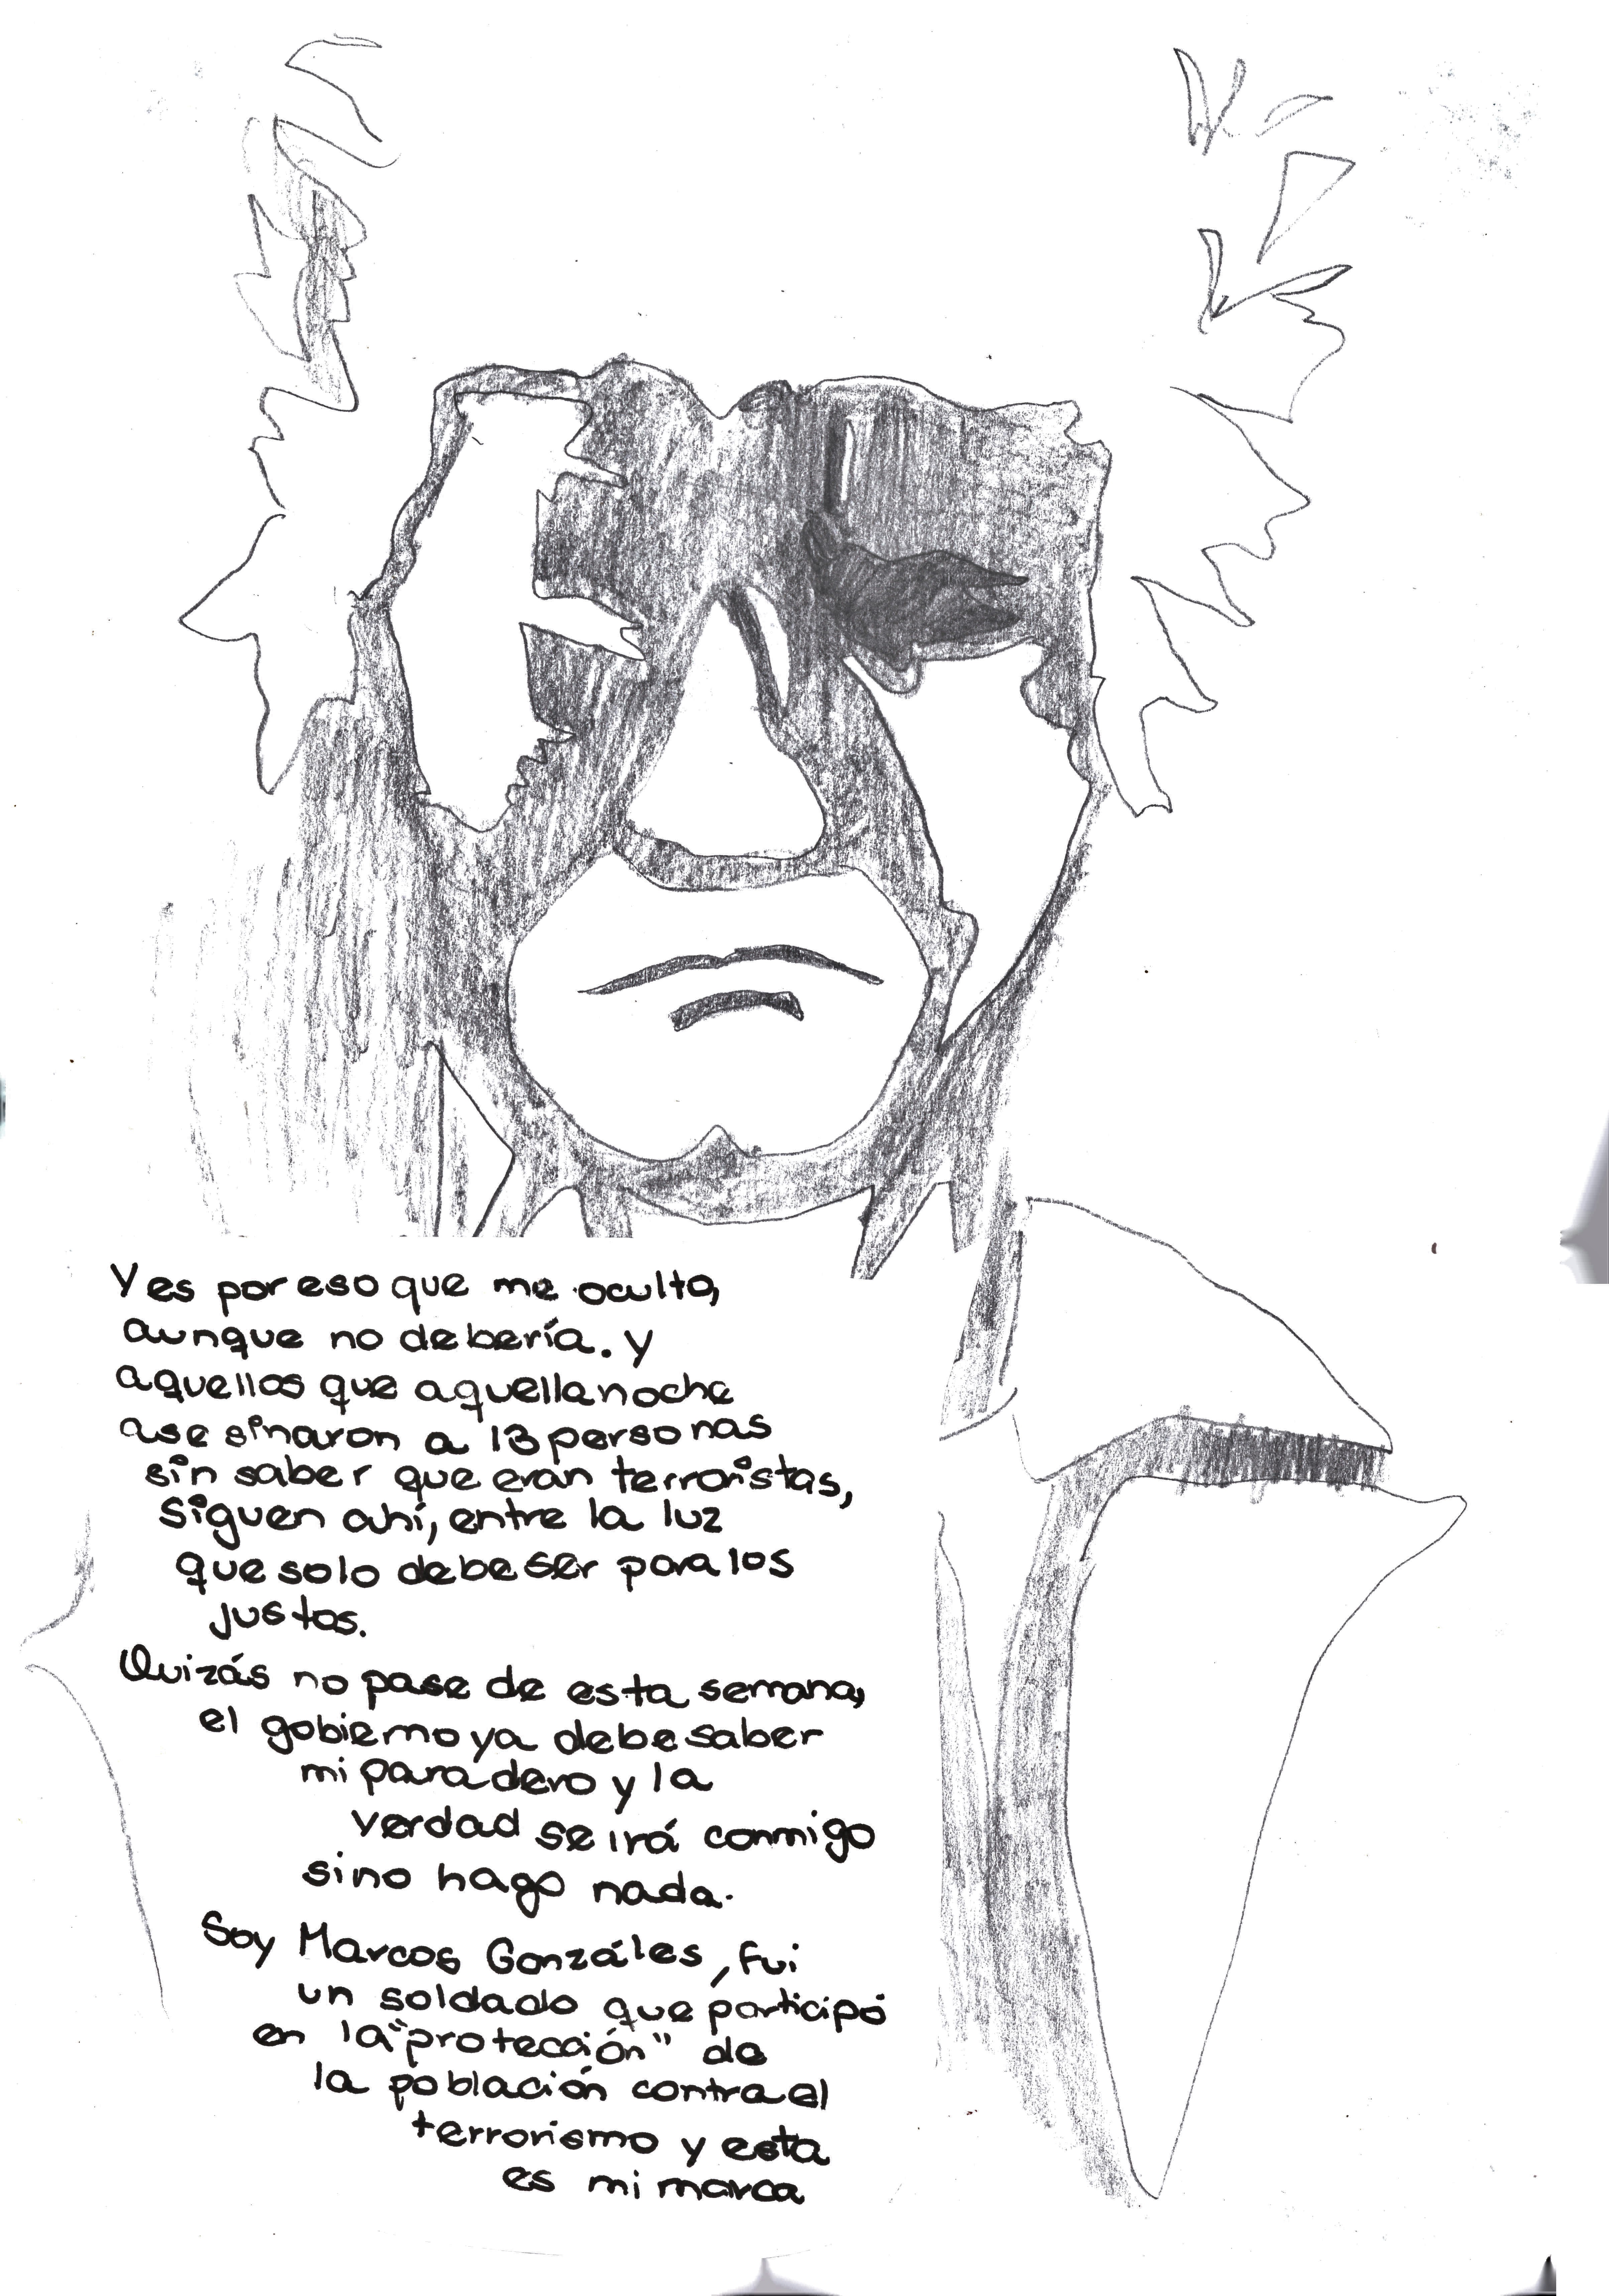 Y es por eso que me oculto,
aunque no debería. Y
aquellos que aquella noche
asesinaron a 13 personas
sin saber que eran terroristas,
siguen ahí, entre la luz
que solo debe ser para los
justos.
Quizás no pase de esta semana,
el gobierno ya debe saber
mi paradero y la
verdad se irá conmigo
si no hago nada.
Soy Marcos Gonzáles, fui
un soldado que participó
en la "protección" de
la población contra el
terrorismo y esta
es mi marca